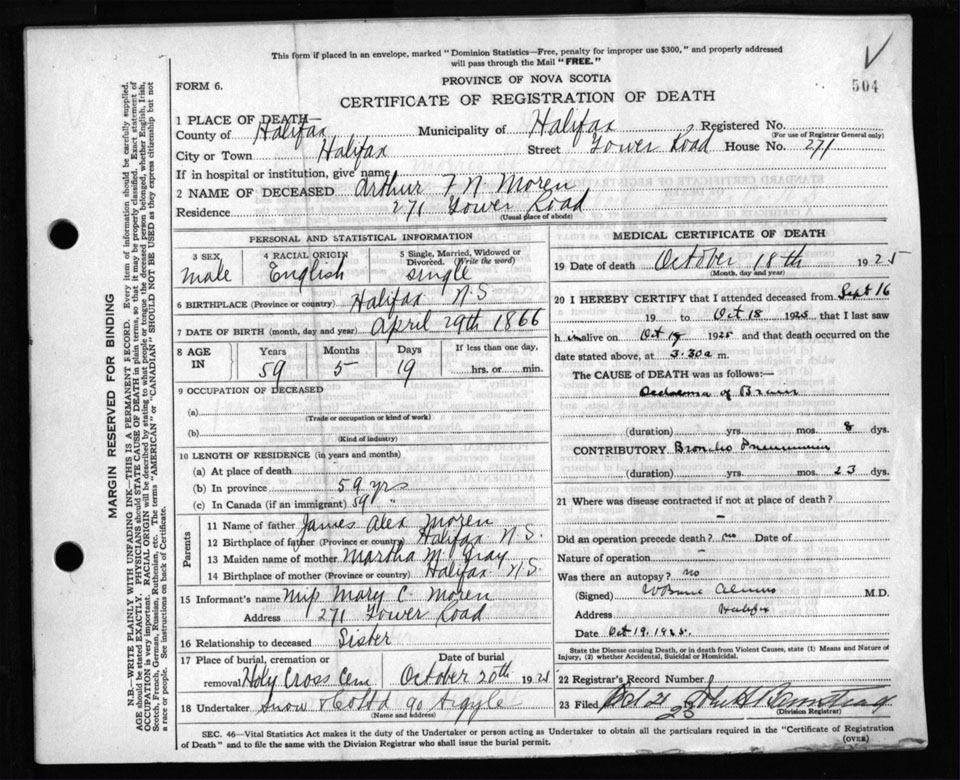 This form if placed in an envelope, marked "Dominion Statistics—Free, penalty for improper use $300," and properly addressed
will pass through the Mail "FREE."
504
FORM 6.
PROVINCE OF NOVA SCOTIA
CERTIFICATE OF REGISTRATION OF DEATH
1 PLACE OF DEATH—
County of Halifax Municipality of Halifax Registered No.
(For use of Registrar General only)
City or Town Halifax Street Tower Road House No. 271
If in hospital or institution, give name
2 NAME OF DECEASED Arthur F. N. Moren
Residence 271 Tower Road
(Usual place of abode)
PERSONAL AND STATISTICAL INFORMATION
3 SEX male
4 RACIAL ORIGIN English
5 Single, Married, Widowed or
Divorced. (Write the word) single
6 BIRTHPLACE (Province or country) Halifax N.S
7 DATE OF BIRTH (month, day and year) April 29th 1866
8 AGE IN
Years Months Days If less than one day,
59 5 19 hrs. or min.
9 OCCUPATION OF DECEASED
(a)
(Trade or occupation or kind of work)
(b)
(Kind of industry)
10 LENGTH OF RESIDENCE (in years and months)
(a) At place of death
(b) In province 59 yrs
(c) In Canada (if an immigrant) 59 "
Parents
11 Name of father James Alex Moren
12 Birthplace of father (Province or country) Halifax N.S.
13 Maiden name of mother Martha M. Gray
14 Birthplace of mother (Province or country) Halifax N.S.
15 Informant's name Miss Mary C. Moren
Address 271 Tower Road
16 Relationship to deceased Sister
17 Place of burial, cremation or
removal Holy Cross Cem
Date of burial
October 20th 192
18 Undertaker Snow & Co Ltd 90 Argyle
(Name and address)
MEDICAL CERTIFICATE OF DEATH
19 Date of death October 18th 1925
(Month, day and year)
20 I HEREBY CERTIFY that I attended deceased from Sept 16
19 to Oct 18 1925 that I last saw
h im alive on Oct 17 1925 and that death occurred on the
date stated above, at 3.30 a m.
The CAUSE of DEATH was as follows:—
Oedoema of Brain
(duration) yrs. mos. 8 dys.
CONTRIBUTORY Broncho Pneumonia
(duration) yrs. mos. 23 dys.
21 Where was disease contracted if not at place of death?
—
Did an operation precede death? no Date of
Nature of operation —
Was there an autopsy? no
(Signed) M.D.
Address Halifax
Date Oct 19. 1925.
State the Disease causing Death, or in death from Violent Causes, state (1) Means and Nature of
Injury, (2) whether Accidental, Suicidal or Homicidal.
22 Registrar's Record Number
23 Filed Oct 21
(Division Registrar)
SEC. 46—Vital Statistics Act makes it the duty of the Undertaker or person acting as Undertaker to obtain all the particulars required in the "Certificate of Registration
of Death" and to file the same with the Division Registrar who shall issue the burial permit.
(OVER)
MARGIN RESERVED FOR BINDING
N.B—WRITE PLAINLY WITH UNFADING INK—THIS IS A PERMANENT RECORD. Every item of information should be carefully supplied.
AGE should be stated EXACTLY. PHYSICIANS should STATE CAUSE OF DEATH in plain terms, so that it may be properly classified. Exact statement of
OCCUPATION is very important. RACIAL ORIGIN will be described by stating to what people or tongue the deceased person belonged, whether English, Irish,
Scotch, French, German, Russian, Ruthenian, etc. The terms "AMERICAN" or "CANADIAN" SHOULD NOT BE USED as they express citizenship but not
a race or people. See instructions on back of Certificate.